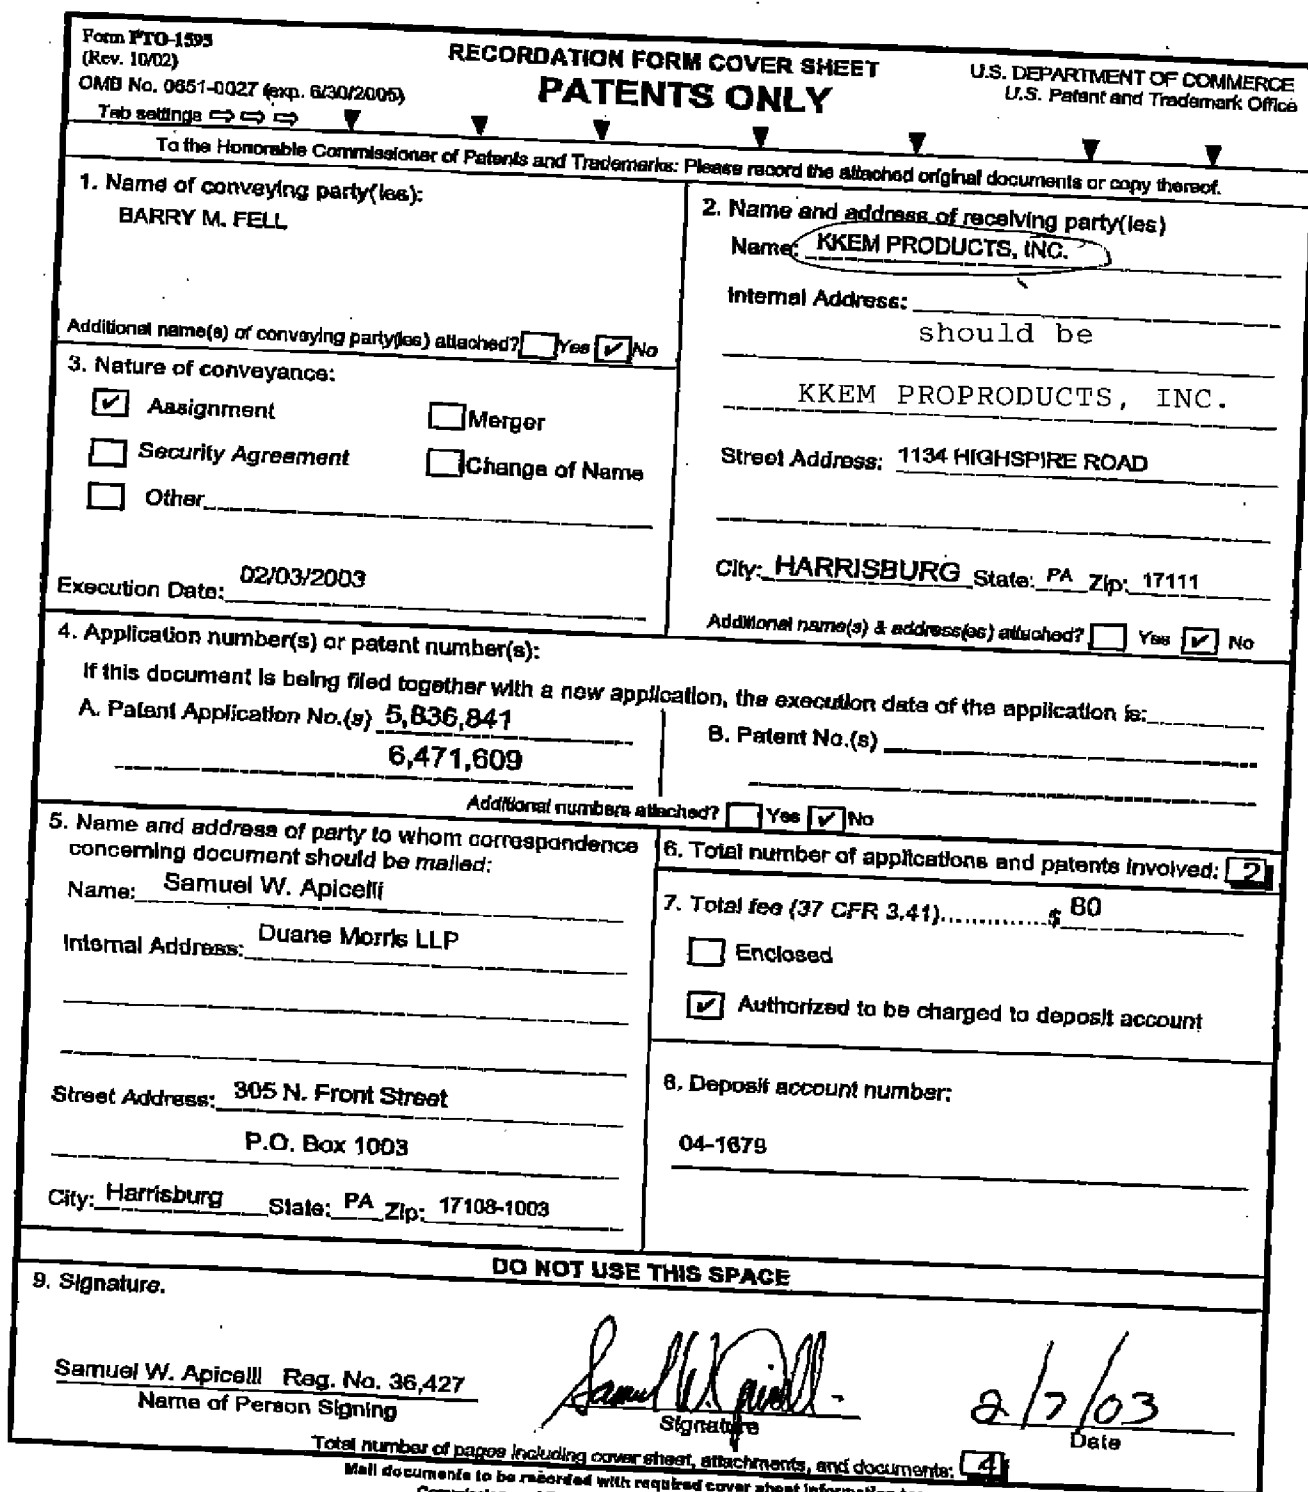 Form PTO-1595
(Rev. 10/02)
OMB No. 0651-0027 (exp. 6/30/2005)
Tab settings ⇨ ⇨ ⇨ ▼ ▼ ▼ ▼ ▼ ▼ ▼
RECORDATION FORM COVER SHEET
PATENTS ONLY
U.S. DEPARTMENT OF COMMERCE
U.S. Patent and Trademark Office
To the Honorable Commissioner of Patents and Trademarks: Please record the attached original documents or copy thereof.
1. Name of conveying party(ies):
BARRY M. FELL
Additional name(s) of conveying party(ies) attached? Yes ✔ No
2. Name and address of receiving party(ies)
Name: KKEM PRODUCTS, INC.
Internal Address:
should be
KKEM PROPRODUCTS, INC.
Street Address: 1134 HIGHSPIRE ROAD
City: HARRISBURG State: PA Zip: 17111
Additional name(s) & address(es) attached? Yes ✔ No
3. Nature of conveyance:
✔ Assignment Merger
Security Agreement Change of Name
Other
Execution Date: 02/03/2003
4. Application number(s) or patent number(s):
If this document is being filed together with a new application, the execution date of the application is:
A. Patent Application No.(s) 5,836,841
6,471,609
B. Patent No.(s)
Additional numbers attached? Yes ✔ No
5. Name and address of party to whom correspondence
concerning document should be mailed:
Name: Samuel W. Apicelli
Internal Address: Duane Morris LLP
Street Address: 305 N. Front Street
P.O. Box 1003
City: Harrisburg State: PA Zip: 17108-1003
6. Total number of applications and patents involved: 2
7. Total fee (37 CFR 3.41)..............$ 80
Enclosed
✔ Authorized to be charged to deposit account
8. Deposit account number:
04-1679
DO NOT USE THIS SPACE
9. Signature.
Samuel W. Apicelli Reg. No. 36,427
Name of Person Signing
Samuel W. Apicelli
Signature
2/7/03
Date
Total number of pages including cover sheet, attachments, and documents: 4
Mail documents to be recorded with required cover sheet information